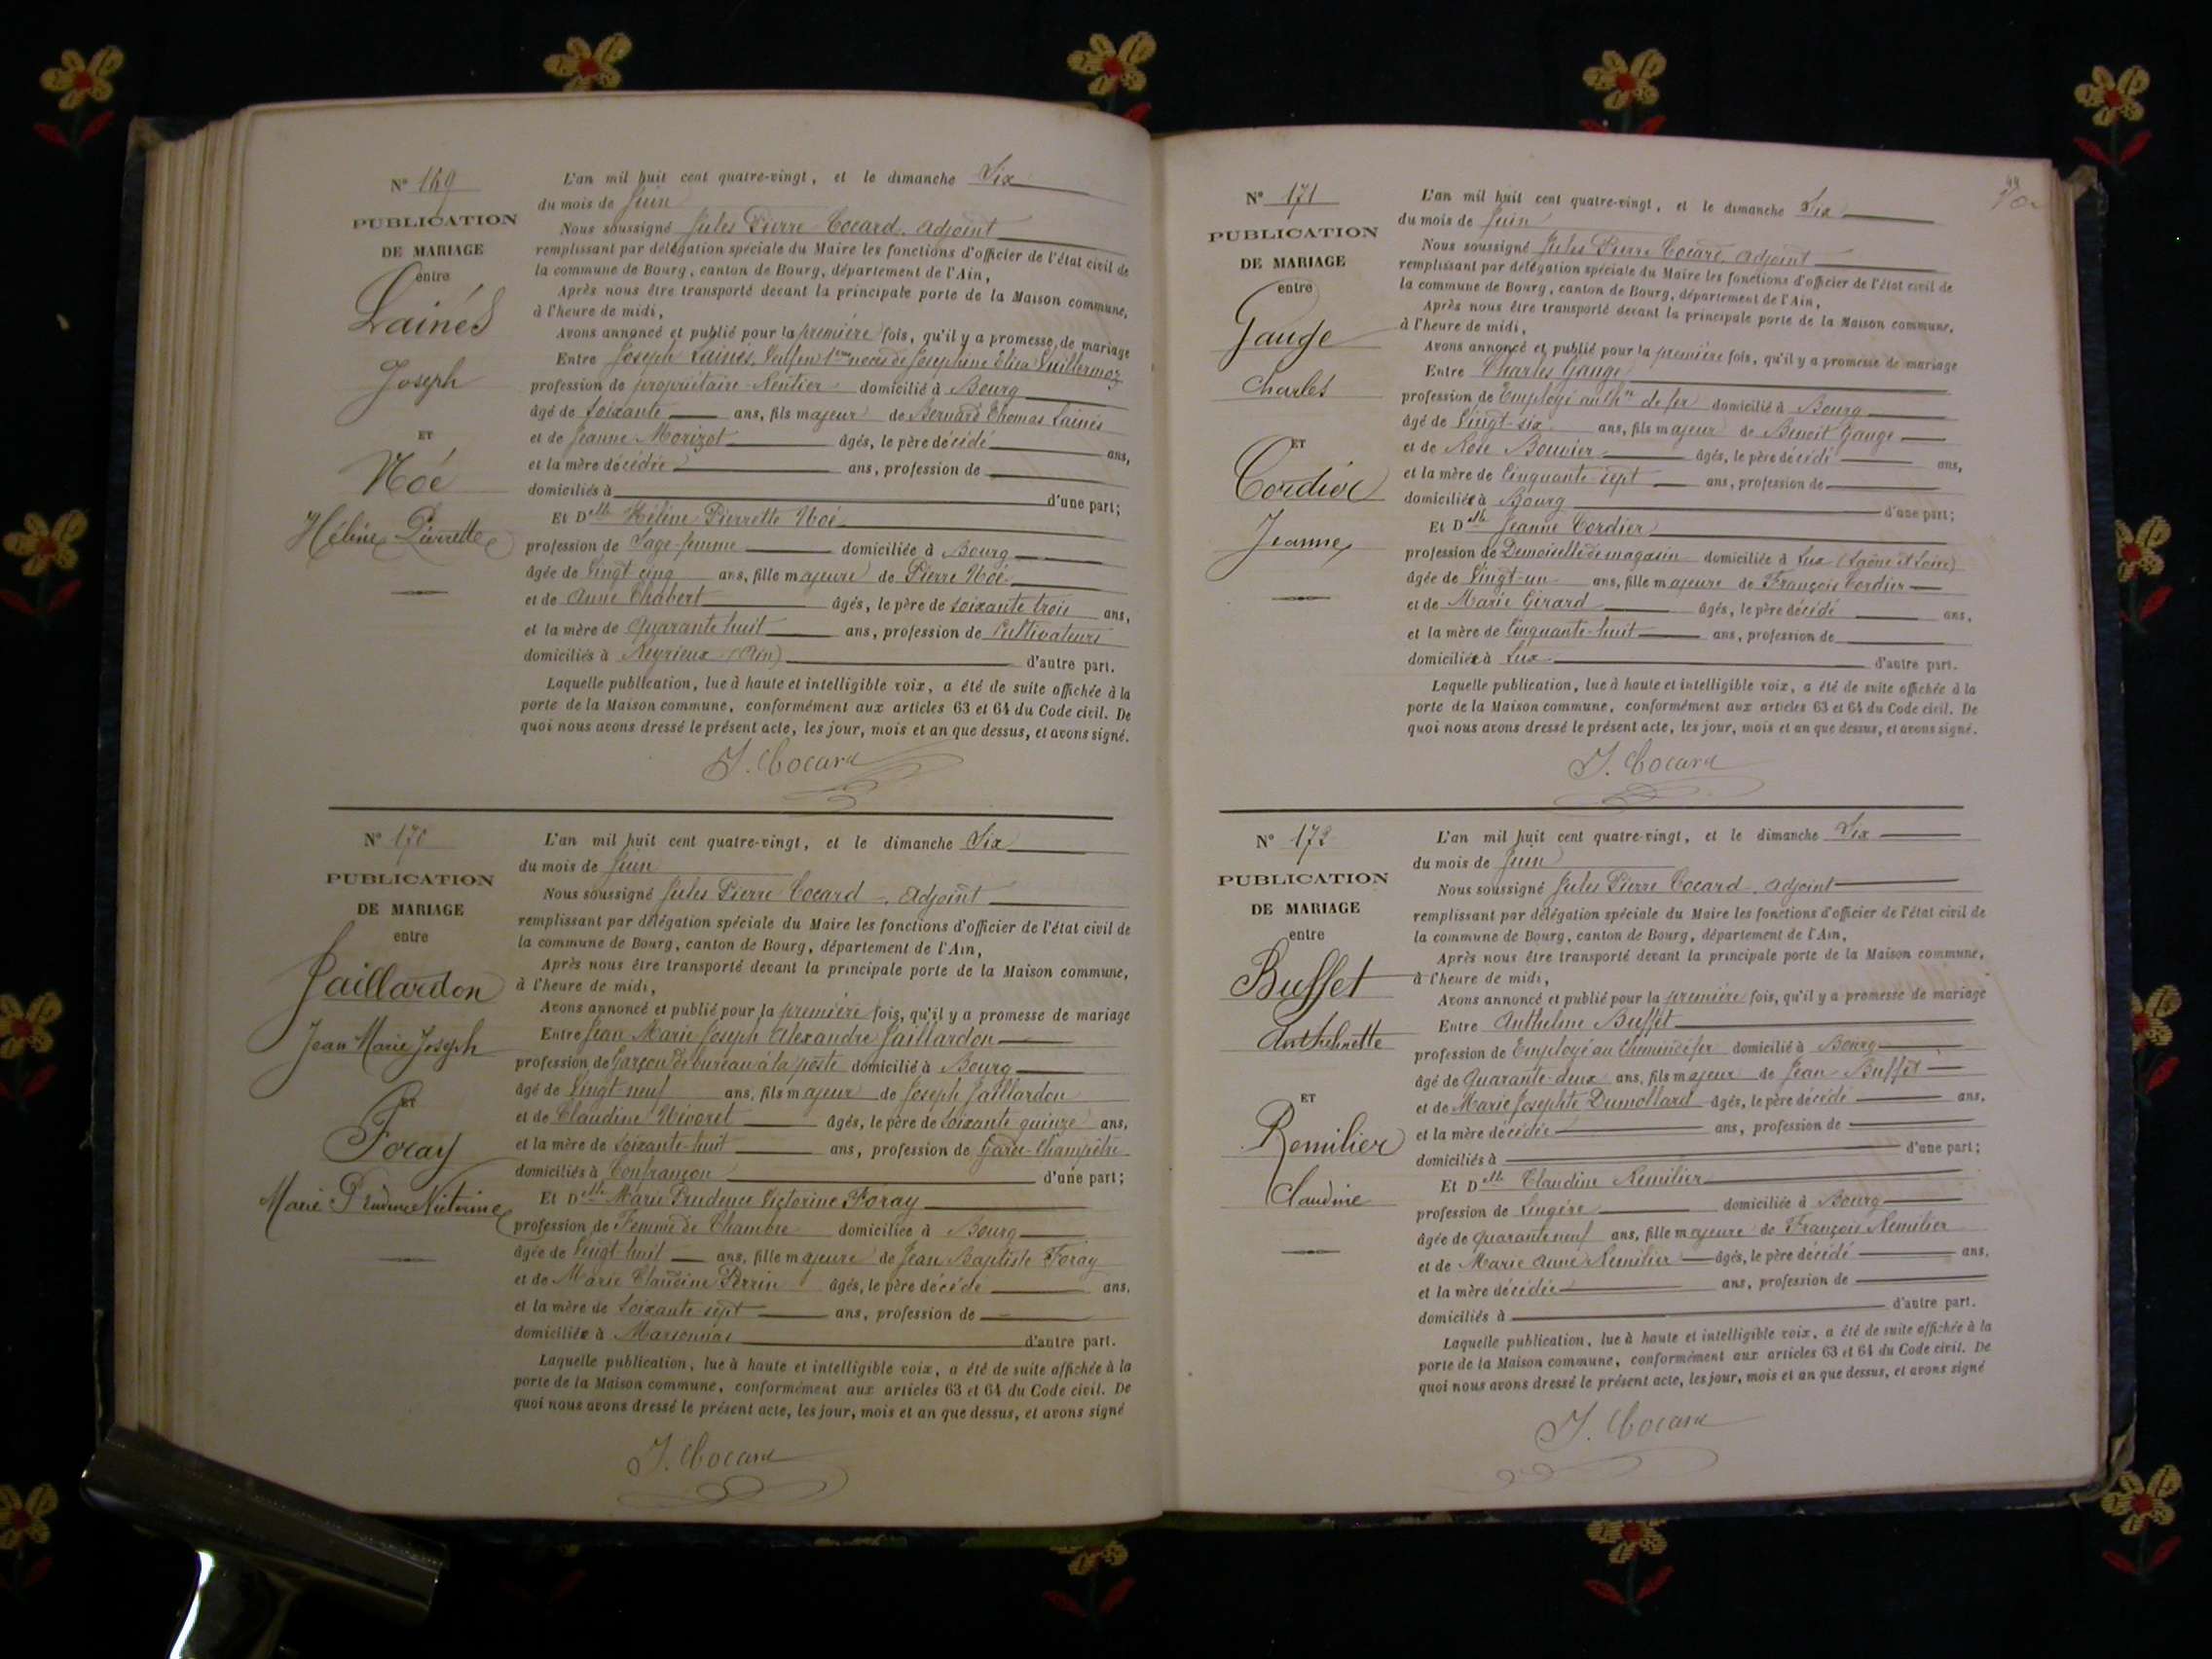 N° 169
PUBLICATION
DE MARIAGE
entre
Lainés
Joseph
ET
Noé
Hélène Pierrette
L'an mil huit cent quatre-vingt, et le dimanche Six
du mois de Juin
Nous soussigné Jules Pierre Cocard, adjoint
remplissant par délégation spéciale du Maire les fonctions d'officier de l'état civil de
la commune de Bourg, canton de Bourg, département de l'Ain,
Après nous être transporté devant la principale porte de la Maison commune,
à l'heure de midi,
Avons annoncé et publié pour la première fois, qu'il y a promesse de mariage
Entre Joseph Lainés, Veuf en 1ères noces de Joséphine Eliza Vuillermoz
profession de propriétaire Rentier domicilié à Bourg
âgé de Soixante ans, fils majeur de Bernard Thomas Lainés
et de Jeanne Morizot âgés, le père décédé ans,
et la mère décédée ans, profession de
domiciliés à d'une part;
Et Delle Hélène Pierrette Noé
profession de Sage-femme domiciliée à Bourg
âgée de Vingt cinq ans, fille majeure de Pierre Noé
et de Anne Chabert âgés, le père de soixante trois ans,
et la mère de Quarante huit ans, profession de Cultivateurs
domiciliés à Reyrieux (Ain) d'autre part.
Laquelle publication, lue à haute et intelligible voix, a été de suite affichée à la
porte de la Maison commune, conformément aux articles 63 et 64 du Code civil. De
quoi nous avons dressé le présent acte, les jour, mois et an que dessus, et avons signé.
J. Cocard
N° 170
PUBLICATION
DE MARIAGE
entre
Jaillardon
Jean Marie Joseph
ET
Foray
Marie Prudence Victorine
L'an mil huit cent quatre-vingt, et le dimanche Six
du mois de Juin
Nous soussigné Jules Pierre Cocard, Adjoint
remplissant par délégation spéciale du Maire les fonctions d'officier de l'état civil de
la commune de Bourg, canton de Bourg, département de l'Ain,
Après nous être transporté devant la principale porte de la Maison commune,
à l'heure de midi,
Avons annoncé et publié pour la première fois, qu'il y a promesse de mariage
Entre Jean Marie Joseph Alexandre Jaillardon
profession de Garçon de bureau à la poste domicilié à Bourg
âgé de Vingt-neuf ans, fils majeur de Joseph Jaillardon
et de Claudine Nivoret âgés, le père de soixante quinze ans,
et la mère de soixante-huit ans, profession de Garde-Champêtre
domiciliés à Confrançon d'une part;
Et Delle Marie Prudence Victorine Foray
profession de Femme de Chambre domiciliée à Bourg
âgée de Vingt huit ans, fille majeure de Jean Baptiste Foray
et de Marie Claudine Perrin âgés, le père décédé ans,
et la mère de Soixante sept ans, profession de
domiciliée à Marsonnas d'autre part.
Laquelle publication, lue à haute et intelligible voix, a été de suite affichée à la
porte de la Maison commune, conformément aux articles 63 et 64 du Code civil. De
quoi nous avons dressé le présent acte, les jour, mois et an que dessus, et avons signé
J. Cocard
N° 171
PUBLICATION
DE MARIAGE
entre
Gauge
Charles
ET
Cordier
Jeanne
L'an mil huit cent quatre-vingt, et le dimanche Six
du mois de Juin
Nous soussigné Jules Pierre Cocard, adjoint
remplissant par délégation spéciale du Maire les fonctions d'officier de l'état civil de
la commune de Bourg, canton de Bourg, département de l'Ain,
Après nous être transporté devant la principale porte de la Maison commune,
à l'heure de midi,
Avons annoncé et publié pour la première fois, qu'il y a promesse de mariage
Entre Charles Gauge
profession de Employé au chn de fer domicilié à Bourg
âgé de Vingt-six ans, fils majeur de Benoit Gauge
et de Rose Bouvier âgés, le père décédé ans,
et la mère de Cinquante-sept ans, profession de
domiciliée à Bourg d'une part;
Et Delle Jeanne Cordier
profession de Demoiselle de magasin domiciliée à Lux (Saône et Loire)
âgée de Vingt-un ans, fille majeure de François Cordier
et de Marie Girard âgés, le père décédé ans,
et la mère de Cinquante-huit ans, profession de
domiciliée à Lux d'autre part.
Laquelle publication, lue à haute et intelligible voix, a été de suite affichée à la
porte de la Maison commune, conformément aux articles 63 et 64 du Code civil. De
quoi nous avons dressé le présent acte, les jour, mois et an que dessus, et avons signé.
J. Cocard
N° 172
PUBLICATION
DE MARIAGE
entre
Buffet
Anthelmette
ET
Remilier
Claudine
L'an mil huit cent quatre-vingt, et le dimanche Six
du mois de Juin
Nous soussigné Jules Pierre Cocard, adjoint
remplissant par délégation spéciale du Maire les fonctions d'officier de l'état civil de
la commune de Bourg, canton de Bourg, département de l'Ain,
Après nous être transporté devant la principale porte de la Maison commune,
à l'heure de midi,
Avons annoncé et publié pour la première fois, qu'il y a promesse de mariage
Entre Anthelme Buffet
profession de Employé au Chemin de fer domicilié à Bourg
âgé de Quarante-deux ans, fils majeur de Jean Buffet
et de Marie Josephte Dumollard âgés, le père décédé ans,
et la mère décédée ans, profession de
domiciliés à d'une part;
Et Delle Claudine Remilier
profession de Lingère domiciliée à Bourg
âgée de Quarante neuf ans, fille majeure de François Remilier
et de Marie Anne Remilier âgés, le père décédé ans,
et la mère décédée ans, profession de
domiciliés à d'autre part.
Laquelle publication, lue à haute et intelligible voix, a été de suite affichée à la
porte de la Maison commune, conformément aux articles 63 et 64 du Code civil. De
quoi nous avons dressé le présent acte, les jour, mois et an que dessus, et avons signé
J. Cocard